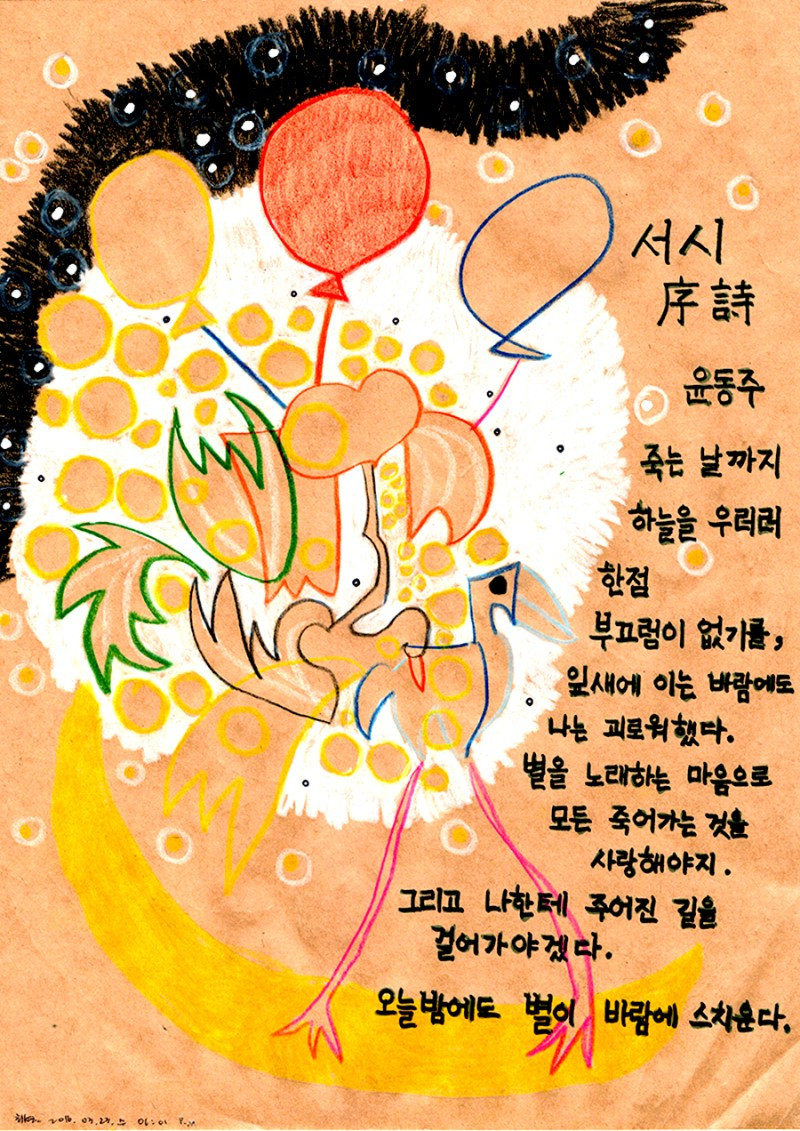 서시
序詩
윤동주
죽는 날까지
하늘을 우러러
한점
부끄럼이 없기를,
잎새에 이는 바람에도
나는 괴로워했다.
별을 노래하는 마음으로
모든 죽어가는 것을
사랑해야지.
그리고 나한테 주어진 길을
걸어가야겠다.
오늘밤에도 별이 바람에 스치운다.